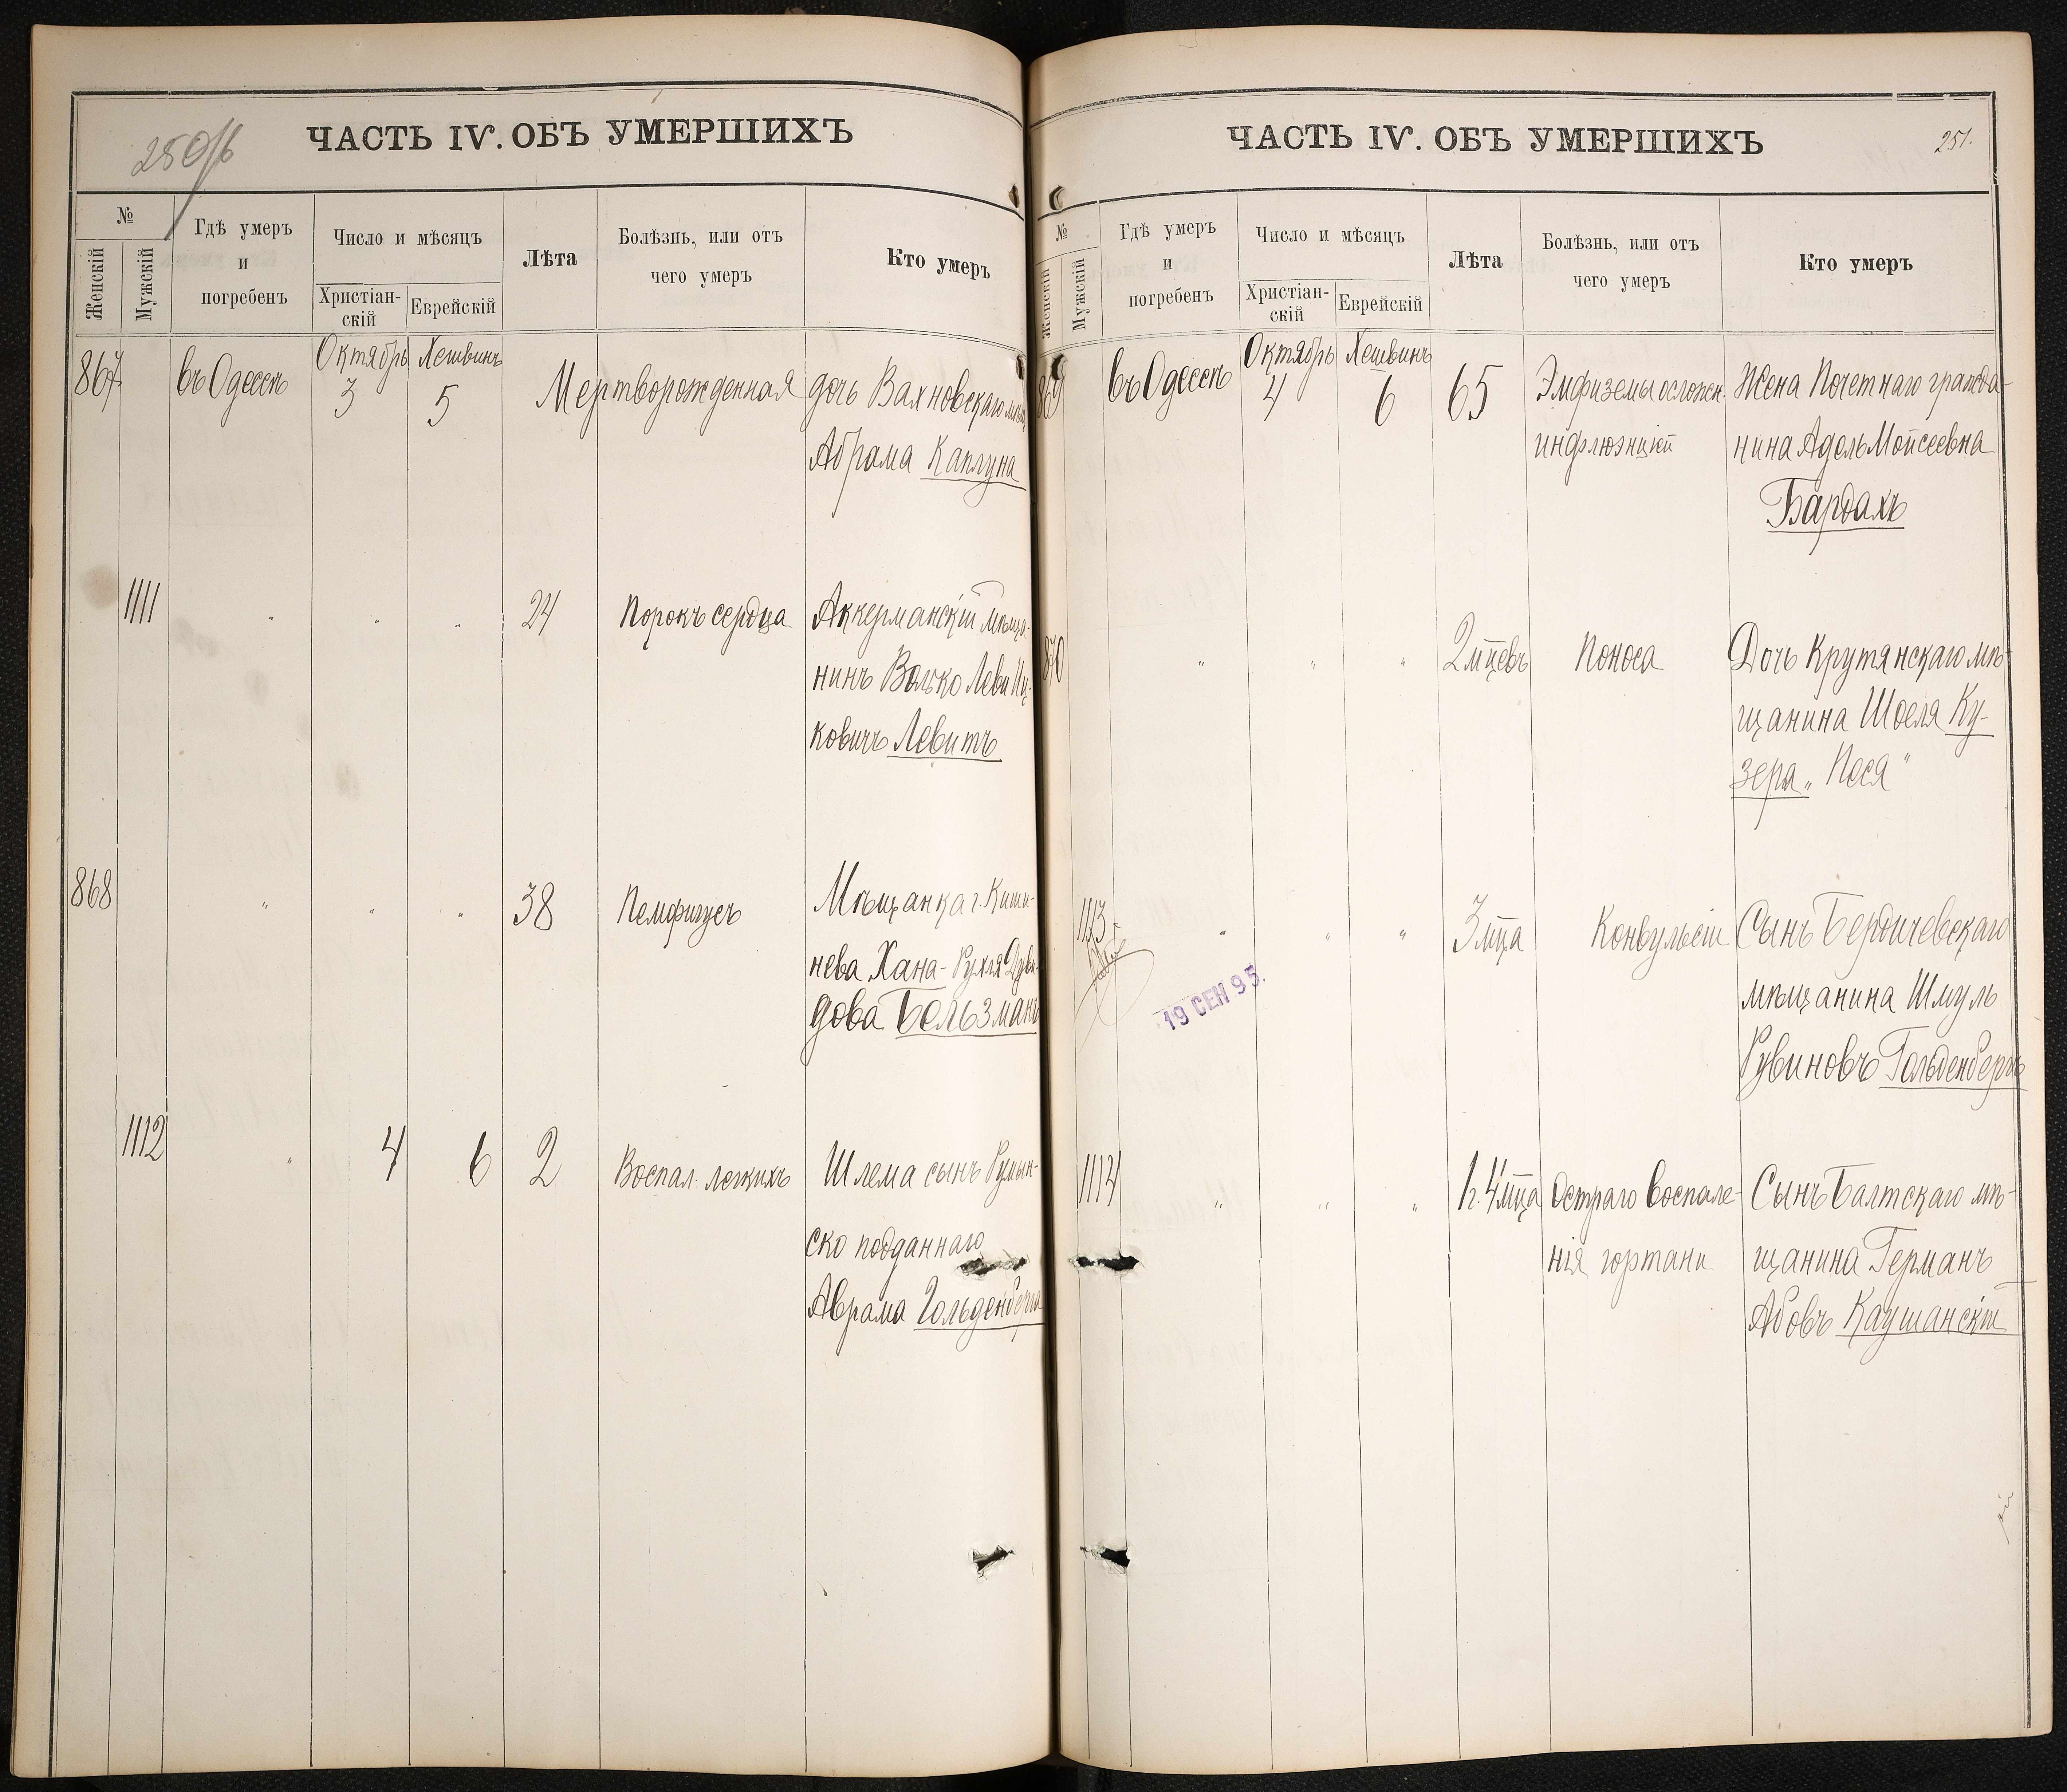 250/б
ЧАСТЬ IV. ОБЪ УМЕРШИХЪ
№
Женскій
Мужскій
Гдѣ умеръ
и
погребенъ
Число и мѣсяцъ
Христіан-
скій
Еврейскій
Лѣта
Болѣзнь, или отъ
чего умеръ
Кто умеръ
Октябрь Хешвинъ
867 въ Одессѣ 3 5 Мертворожденная дочь Вахновскаго
Абрама Каплуна
1111 " " " 24 Порокъ сердца Аккерманскій мѣща-
нинъ Волько Леви Иц-
ковичъ Левитъ
868 " " " 38 Пемфигусъ Мѣщанка г. Киши-
нева Хана-Рухля Дуви-
дова Бельзманъ
1112 " 4 6 2 Воспал. легкихъ Шлема сынъ Румын-
ско подданнаго
Аврама Гольденберга
251.
ЧАСТЬ IV. ОБЪ УМЕРШИХЪ
№
Женскій
Мужскій
Гдѣ умеръ
и
погребенъ
Число и мѣсяцъ
Христіан-
скій
Еврейскій
Лѣта
Болѣзнь, или отъ
чего умеръ
Кто умеръ
Октябрь Хешвинъ
869 въ Одессѣ 4 6 65 Эмфиземы осложн. Жена Почетнаго гражда-
инфлюэнціей нина Адель Мойсеевна
Бардахъ
870 " " " 2 мцевъ Поноса Дочь Крутянскаго мѣ-
щанина Шоеля Ку-
зера "Пося"
1113 " " " 3 мца Конвульсіи Сынъ Бердичевскаго
мѣщанина Шмуль
Рувиновъ Гольденбергъ
19 СЕН 95.
1114 " " " 1 г. 4 мца Остраго воспале- Сынъ Балтскаго мѣ-
нія гортани щанина Германъ
Абовъ Каушанскій